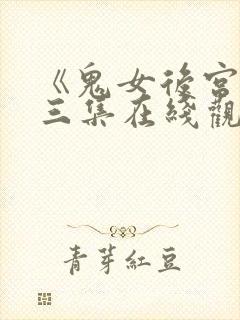 《鬼女後宮
三集在綫觀
青芽紅豆